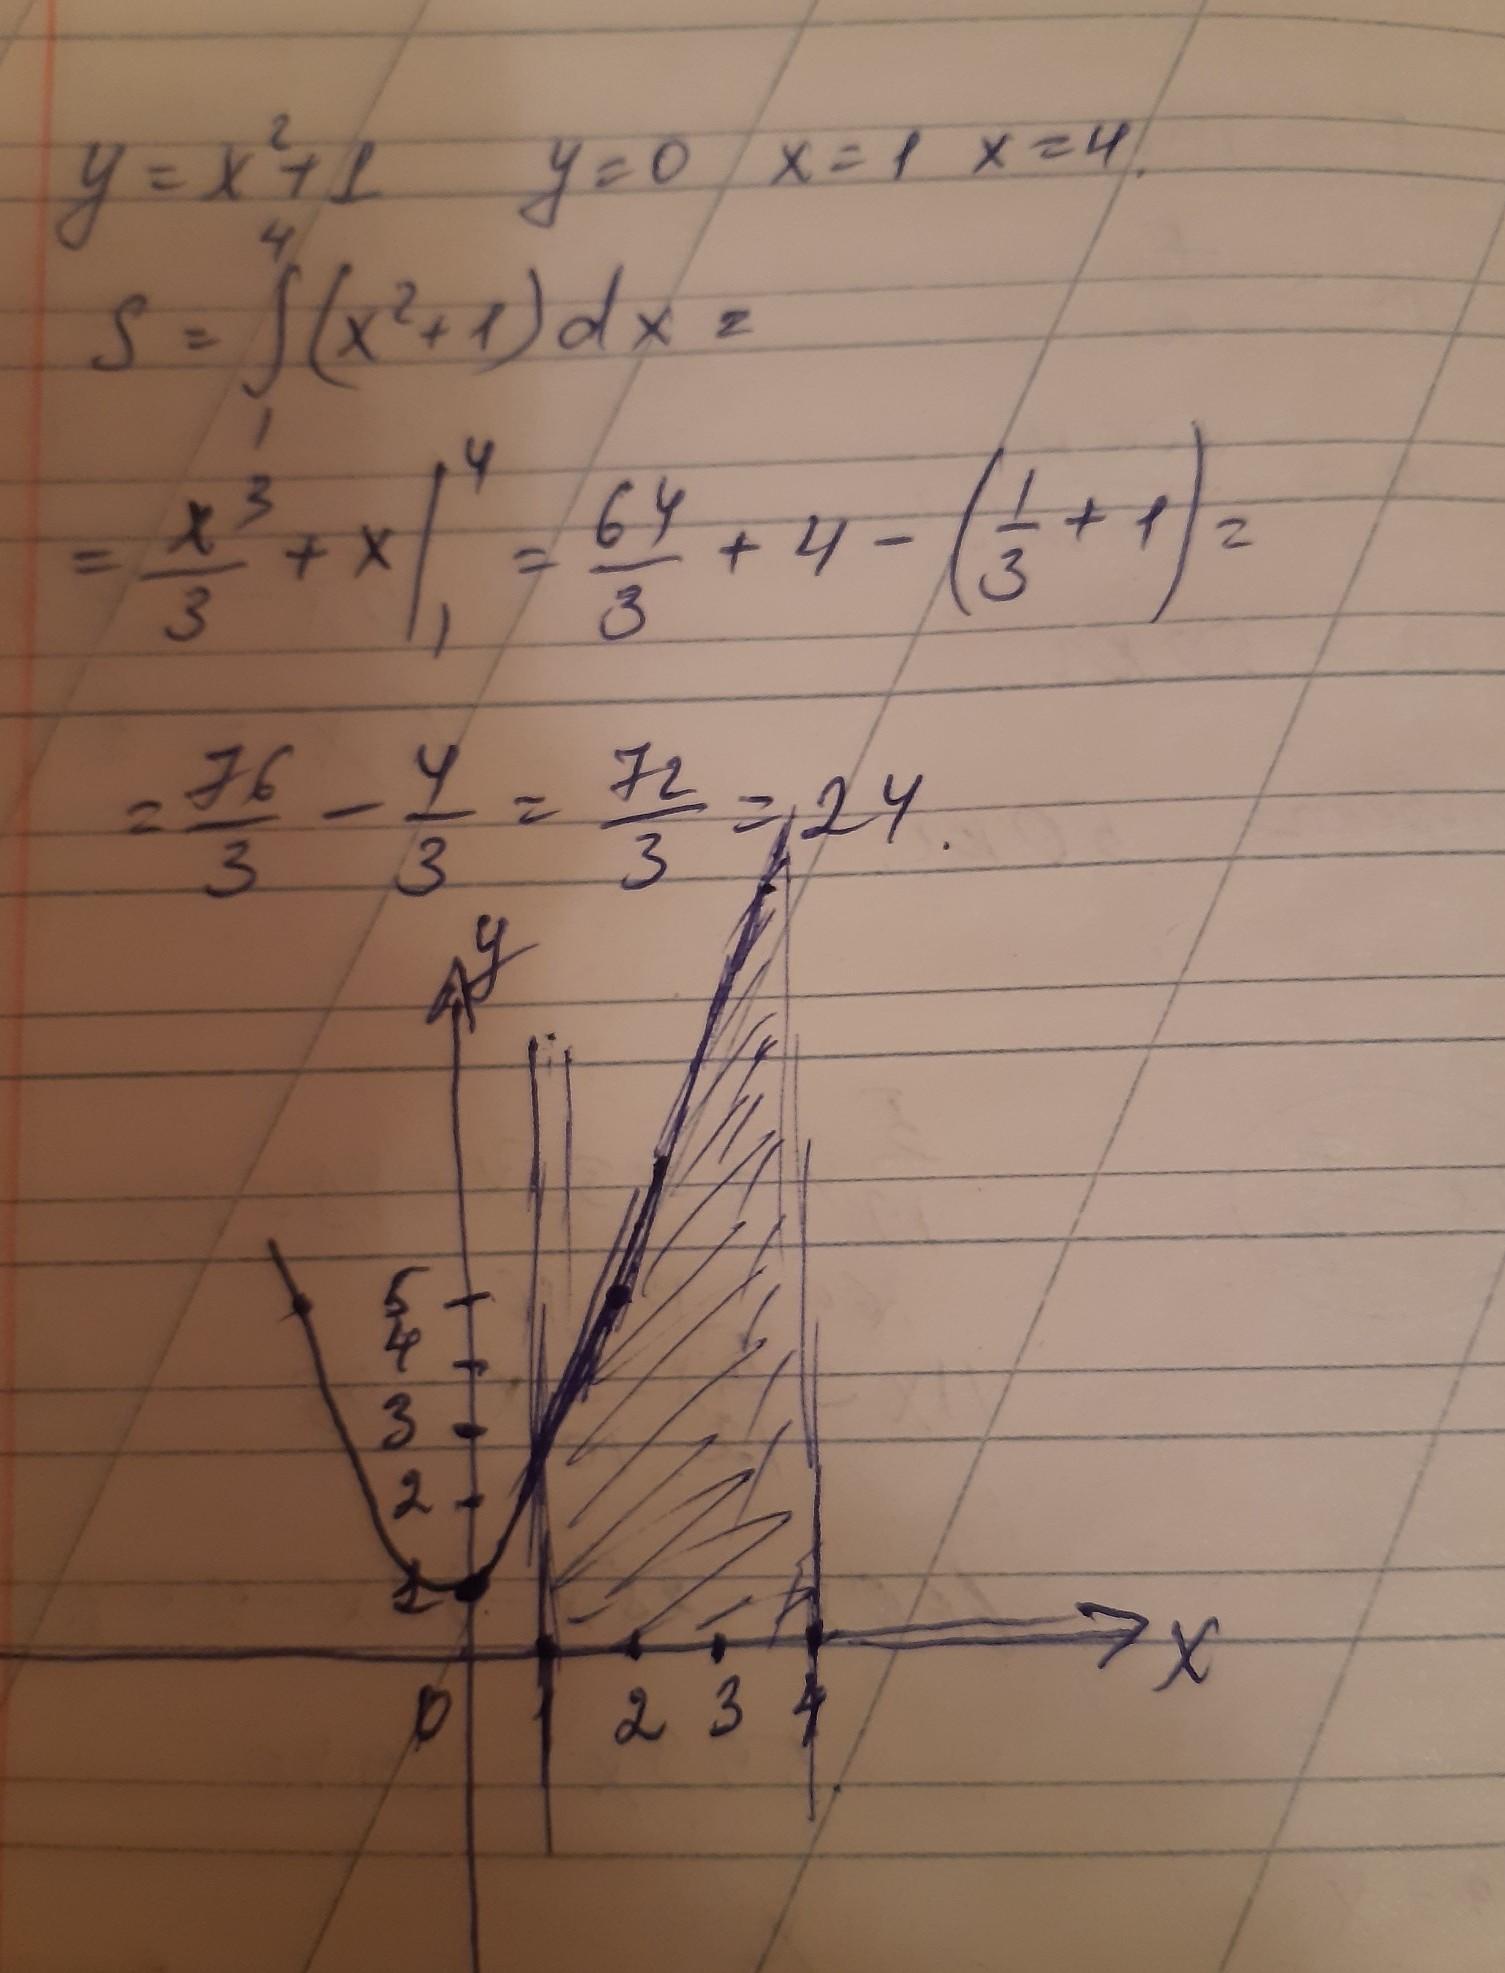 y = x²+1 y = 0 x = 1 x = 4.
S = ∫₁⁴ (x²+1) dx =
= x³/3 + x |₁⁴ = 64/3 + 4 − (1/3 + 1) =
= 76/3 − 4/3 = 72/3 = 24.
y
5
4
3
2
1
0 1 2 3 4 x